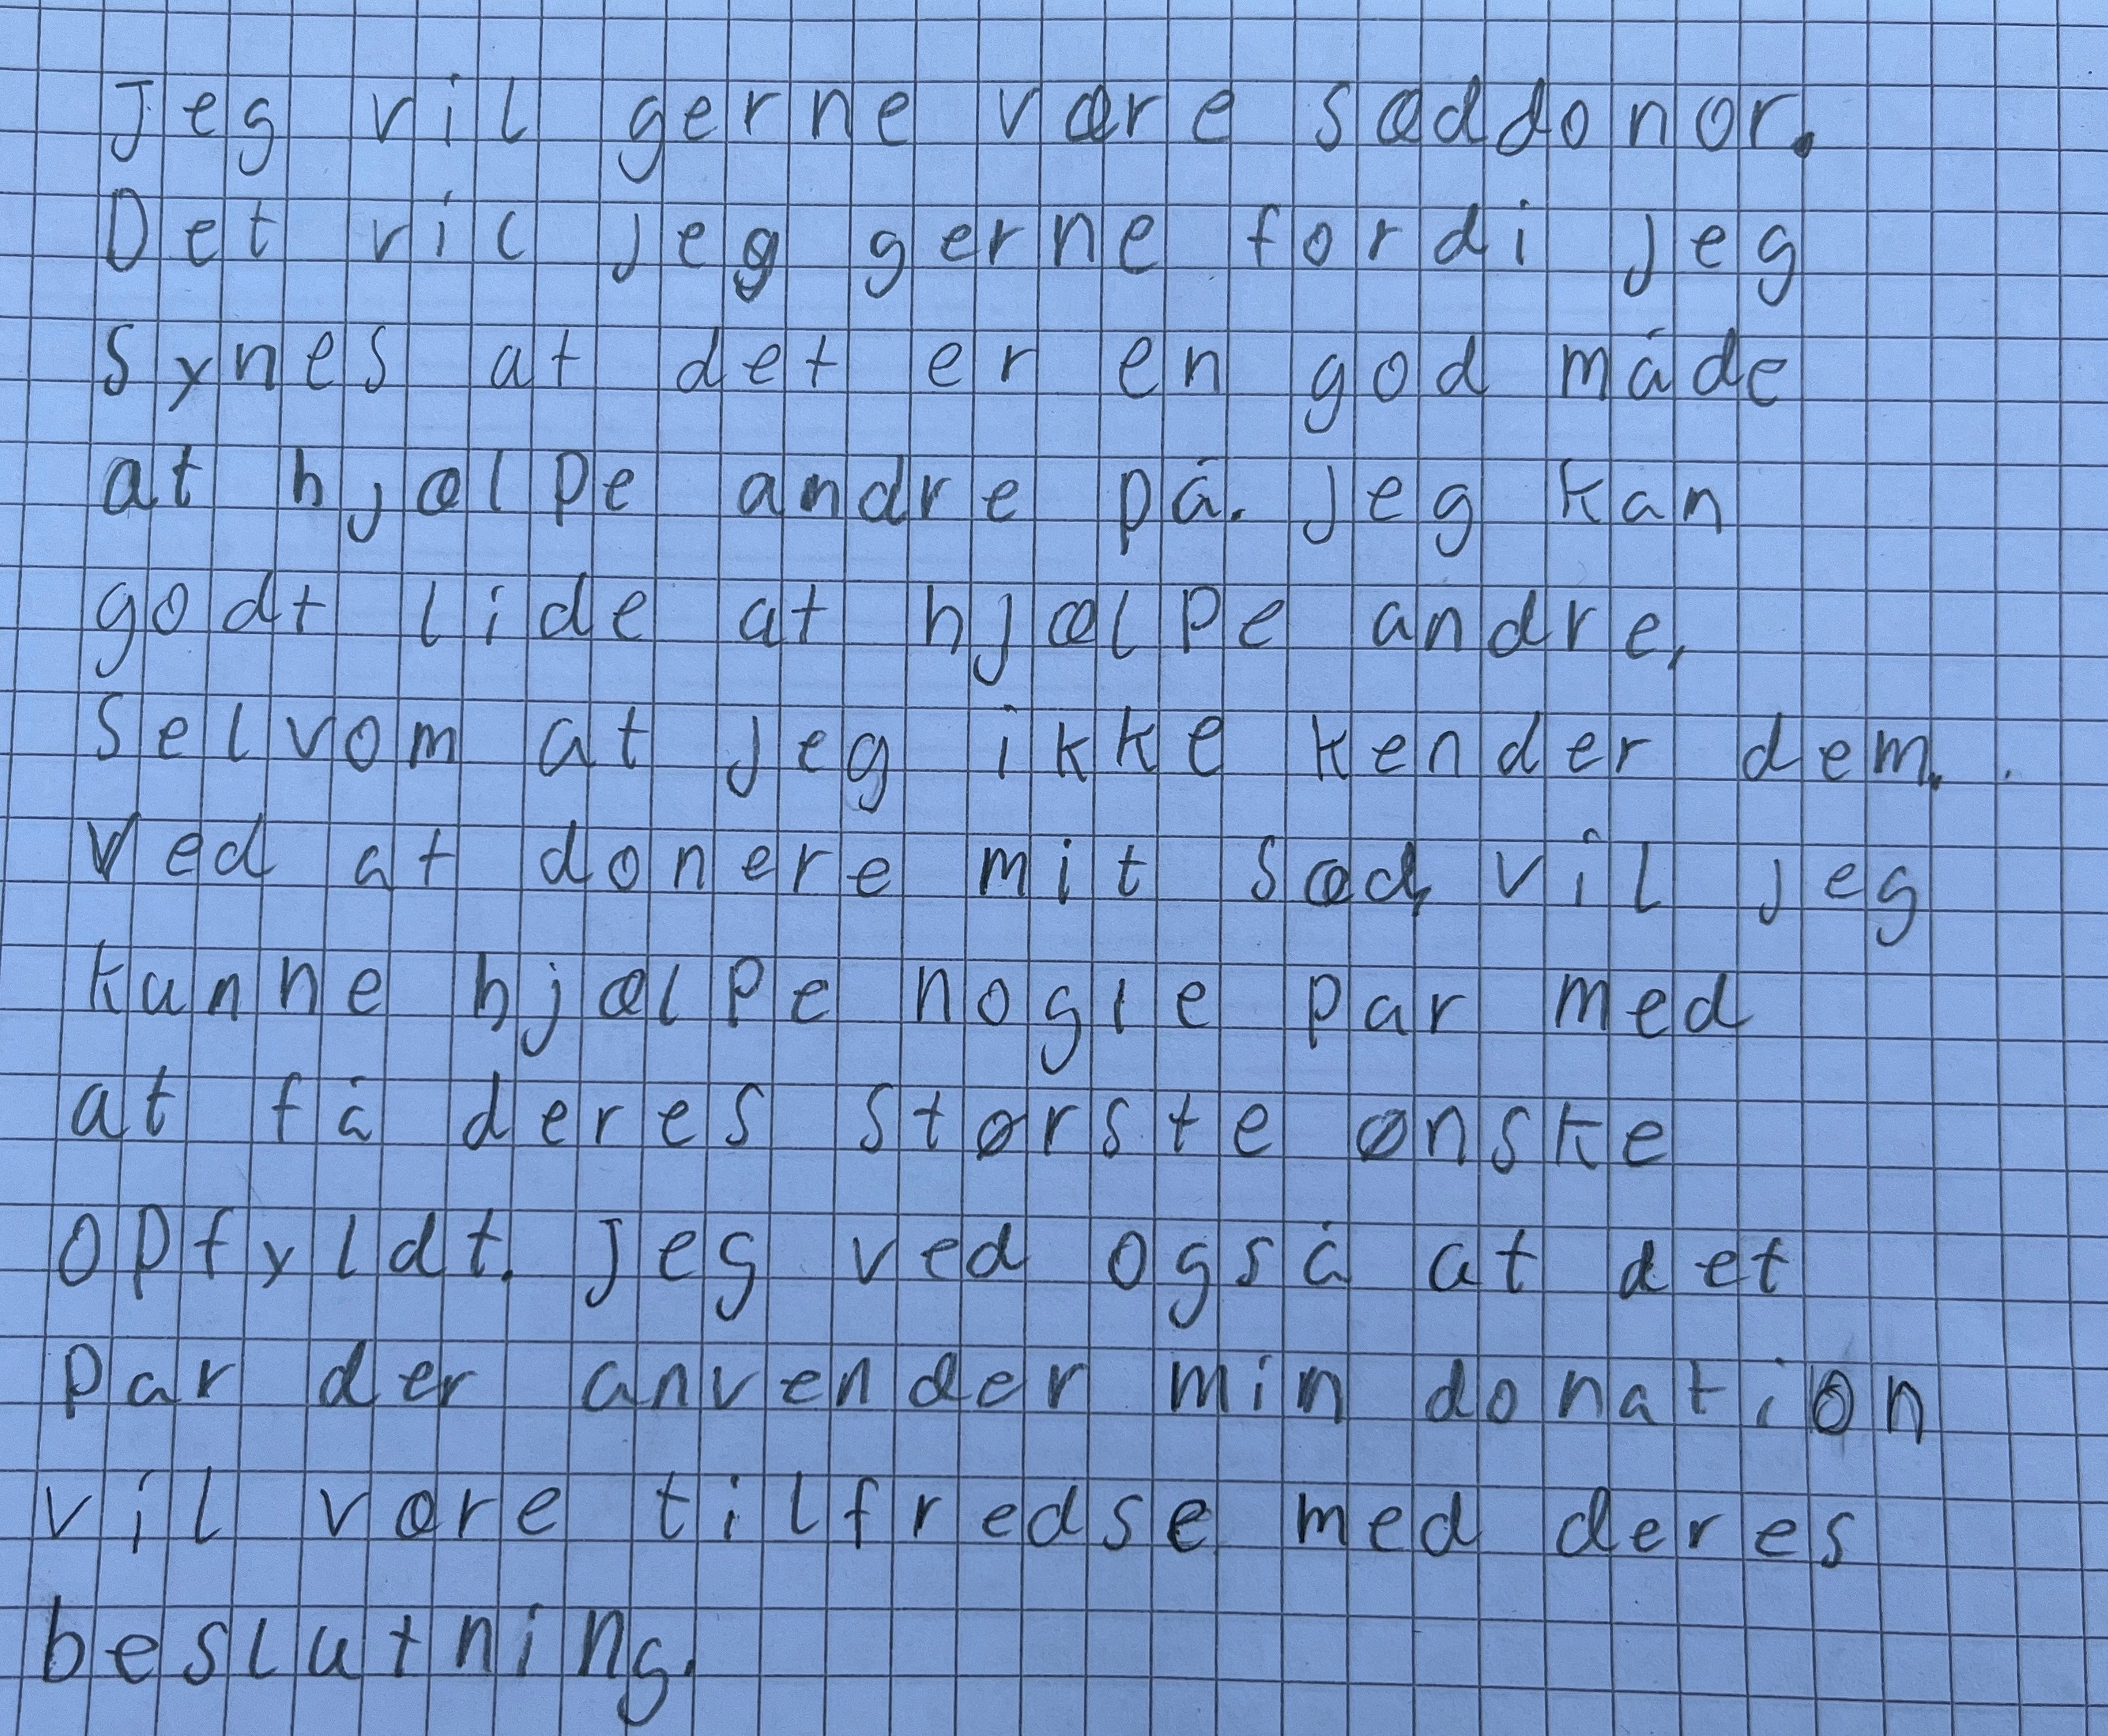 Jeg vil gerne være sæddonor.
Det vil jeg gerne fordi jeg
synes at det er en god måde
at hjælpe andre på. Jeg kan
godt lide at hjælpe andre,
selvom at jeg ikke kender dem.
Ved at donere mit sæd, vil jeg
kunne hjælpe nogle par med
at få deres største ønske
opfyldt. Jeg ved også at det
par der anvender min donation
vil være tilfredse med deres
beslutning.